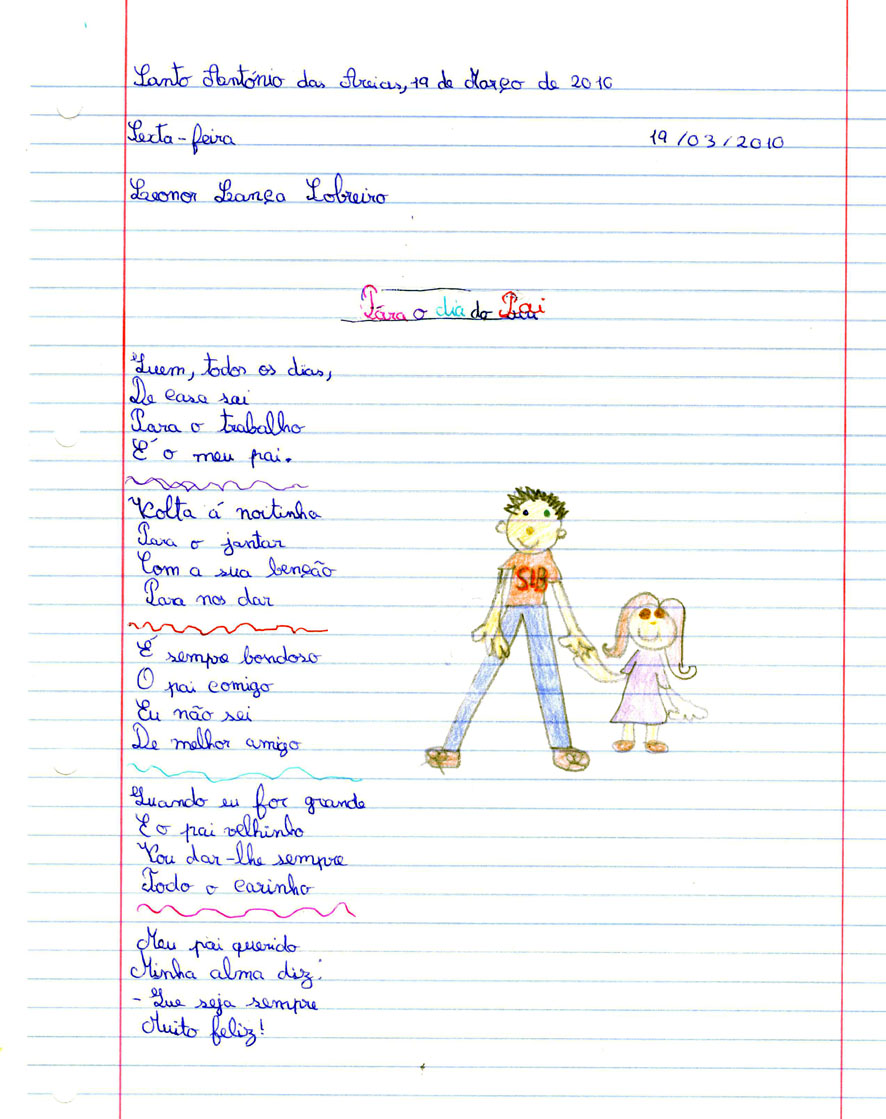 Santo António das Areias, 19 de Março de 2010
Sexta-feira 19/03/2010
Leonor Lança Sobreiro
Pára o dia do Pai
Quem, todos os dias,
De casa sai
Para o trabalho
É o meu pai.
Volta á noitinha
Para o jantar
Com a sua benção
Para nos dar
SIB
É sempre bondoso
O pai comigo
Eu não sei
De melhor amigo
Quando eu for grande
E o pai velhinho
Vou dar-lhe sempre
Todo o carinho
Meu pai querido
Minha alma diz:
- Que seja sempre
Muito feliz!